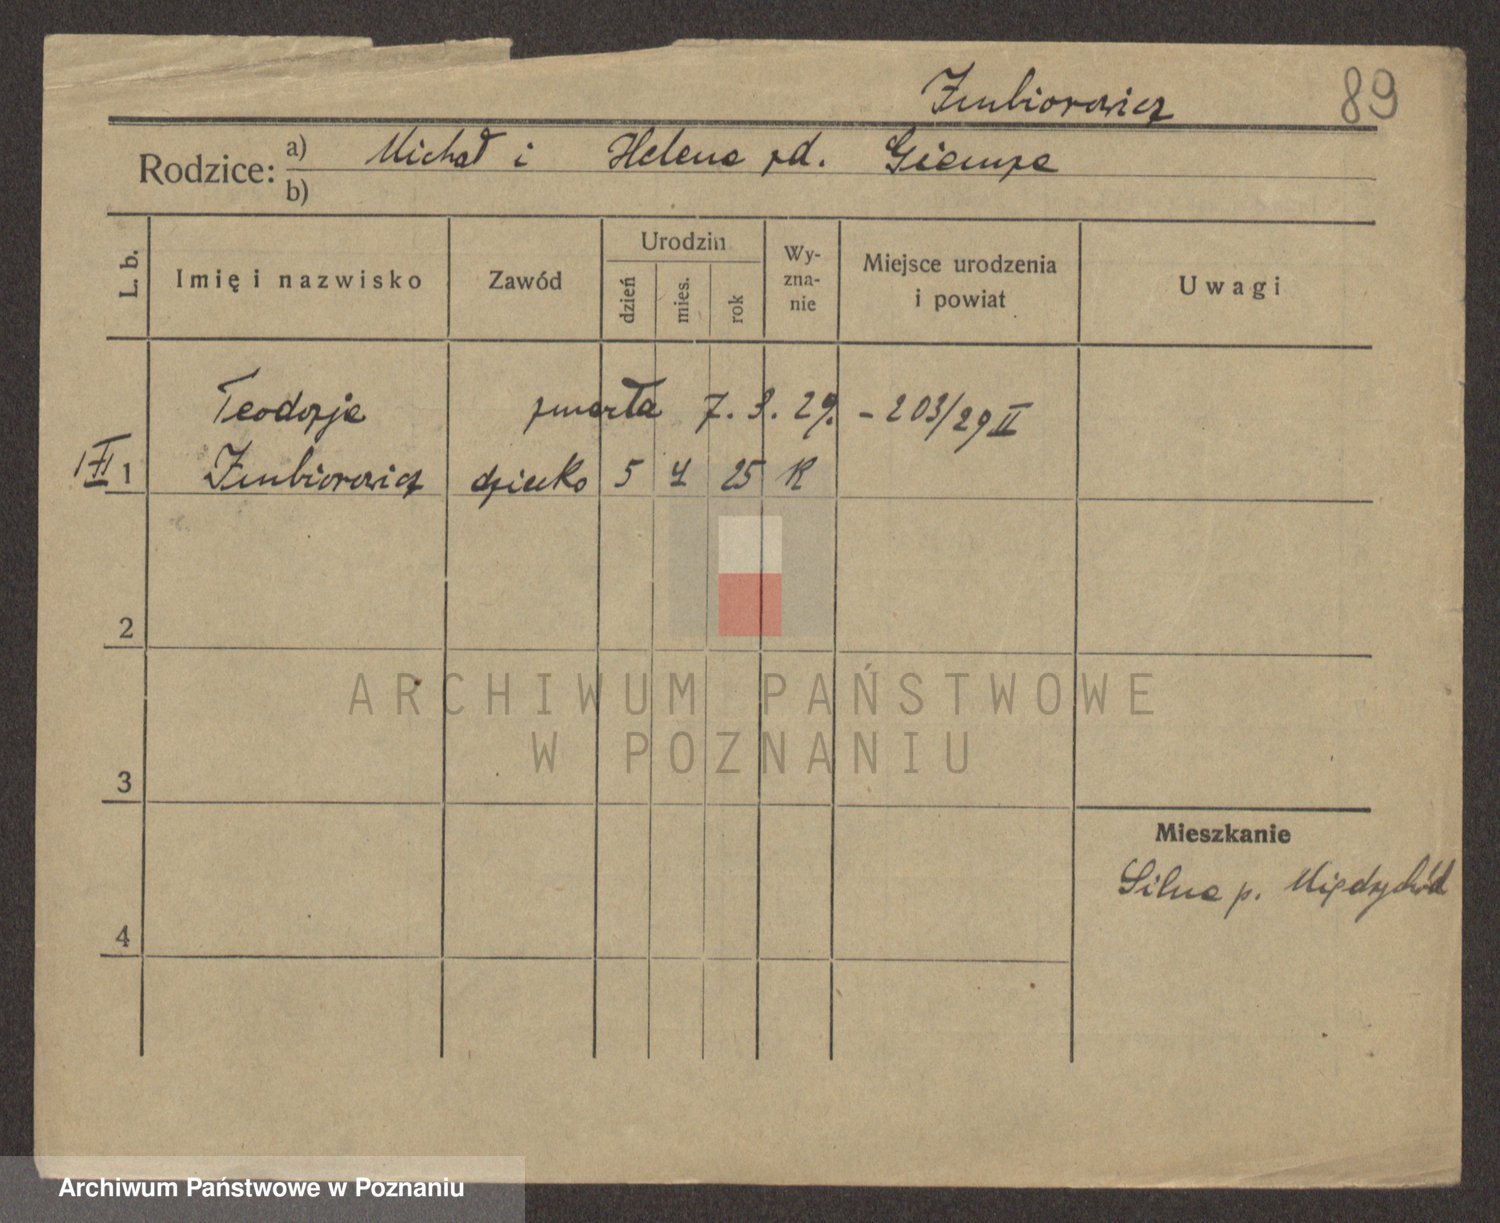 Imbiorowicz 89
Rodzice: a) Michał i Helena zd. Giemza
b)
L. b.
Imię i nazwisko
Zawód
Urodzin
dzień
mies.
rok
Wy-
zna-
nie
Miejsce urodzenia
i powiat
Uwagi
Teodozja zmarła 7. 3. 29. – 203/29 II
1 Imbiorowicz dziecko 5 4 25 K
2
3
4
Mieszkanie
Silna p. Międzychód
ARCHIWUM PAŃSTWOWE
W POZNANIU
Archiwum Państwowe w Poznaniu